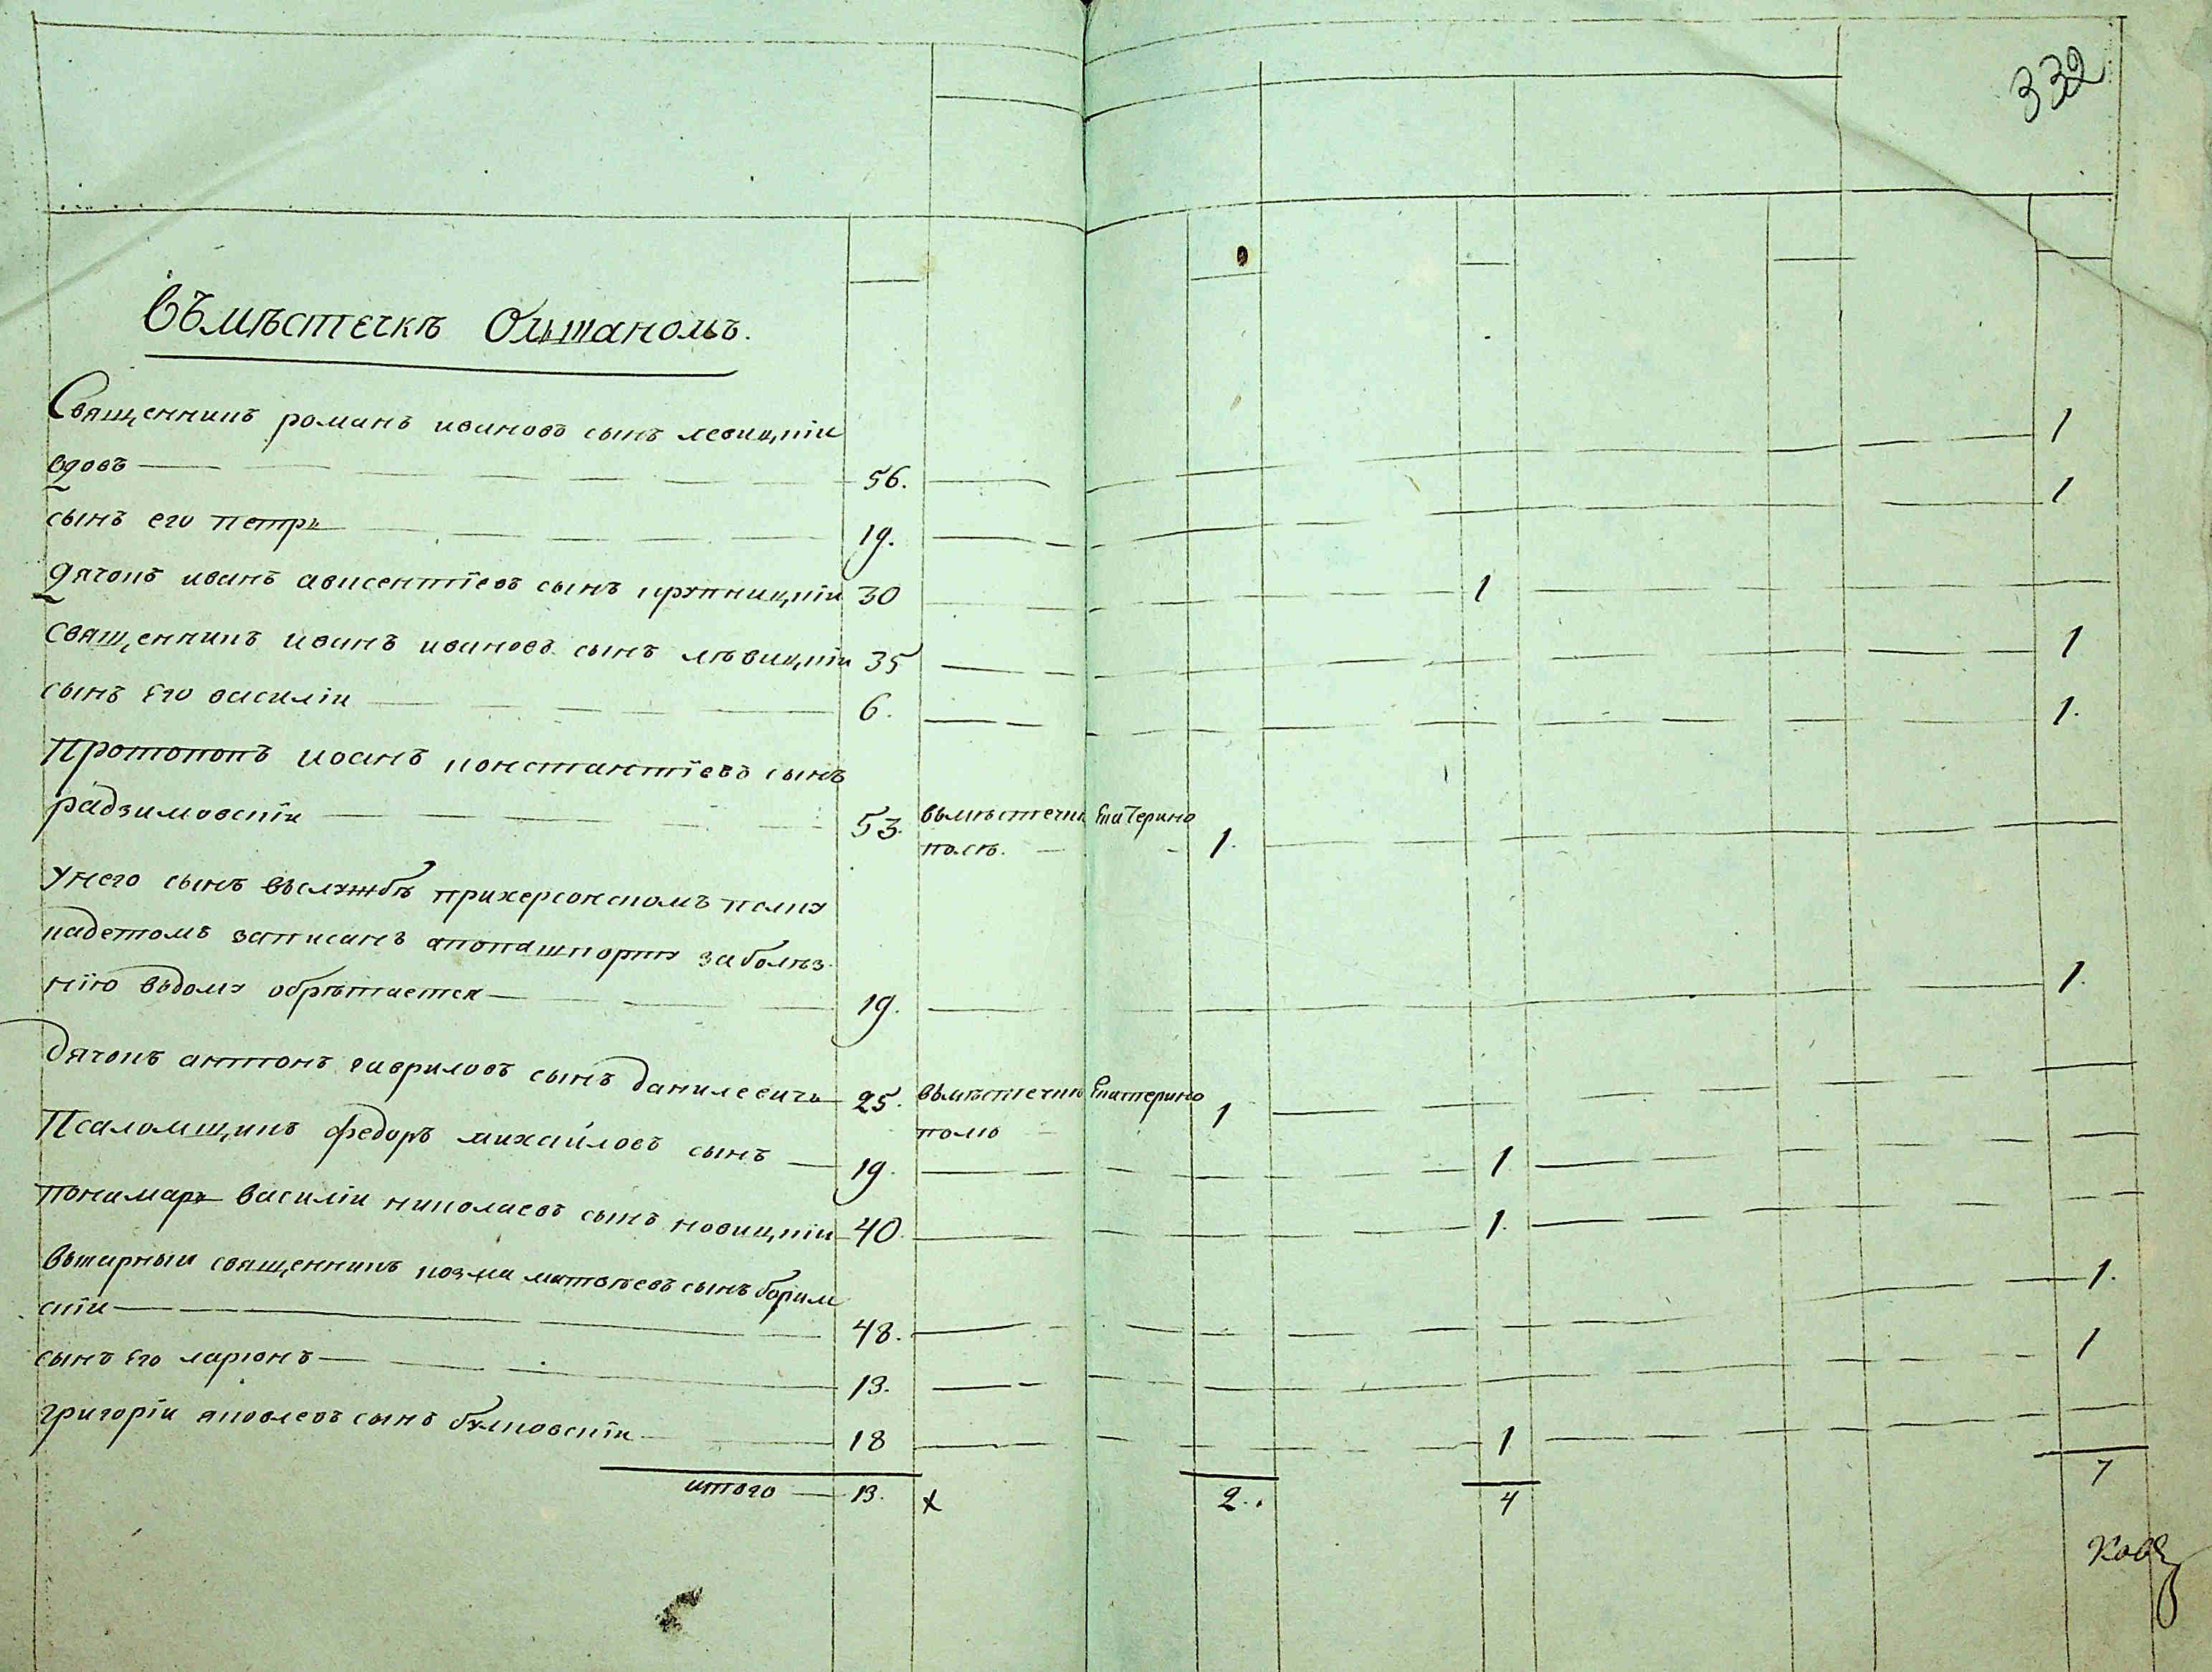 332
Въмѣстечкѣ Ольшаномъ.
Священникъ романъ ивановъ сынъ левицкіи 1
вдовъ 56. 1
сынъ его петръ 19.
дячокъ иванъ ависентїевъ сынъ крупницкіи 30 1
священникъ иванъ ивановъ сынъ лѣвицкіи 35 1
сынъ Его василіи 6. 1.
Протопопъ иоанъ константїевъ сынъ
радзимовскїи 53. вьмѣстечкѣ Екатерино
полѣ. 1.
Унего сынъ вьслужбѣ прихерсонскомъ полку
кадетомъ записанъ апопашпорту заболѣз
нїю вьдому обрѣтается 19. 1.
Дячокъ антонъ гавриловъ сынъ данилевичъ 25. вьмѣстечкѣ Екатерино 1
полю
Псаломщикъ федоръ михайловъ сынъ 19. 1
понамарь василіи николаевъ сынъ новицкіи 40. 1.
Викарныи священникъ козма матвѣевъ сынъ борим 1.
скїи 48.
сынъ Его ларїонъ 13. 1
григоріи яковлевъ сынъ булковскїи 18 1
итого 13. х 2. 4 7